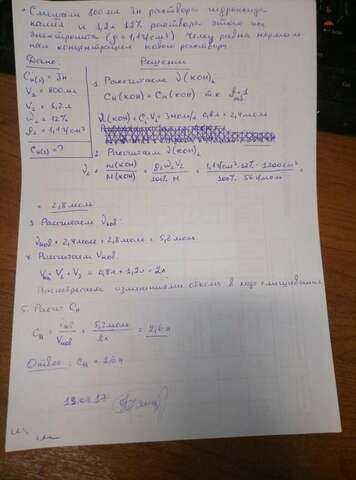 Смешали 800 мл 3н раствора гидроксида
калия и 1,2 л 12% раствора этого же
электролита (ρ = 1,1 г/см³) Чему равна нормаль-
ная концентрация нового раствора
Дано: Решение
Cн(1) = 3н
V₁ = 800мл
V₂ = 1,2л
ω₂ = 12%
ρ₂ = 1,1 г/см³
Cн(3) = ?
1. Рассчитаем ν(KOH)₁
Cн(KOH) = Cм(KOH) т.к.
ν₁(KOH) = C₁V₁ = 3моль/л · 0,8л = 2,4моль
2. Рассчитаем ν(KOH)₂
ν₂ = m(KOH)/M(KOH) = ρ₂ω₂V₂/100% · M = 1,1 г/см³ · 12% · 1200см³/100% · 56г/моль =
= 2,8моль
3. Рассчитаем νнов
νнов = 2,4моль + 2,8моль = 5,2моль
4. Рассчитаем Vнов
Vнов = V₁ + V₂ = 0,8л + 1,2л = 2л
изменениями объёма в ходе смешивания
5. Расчет Cн
Cн = νнов/Vнов = 5,2моль/2л = 2,6н
Ответ: Cн = 2,6н